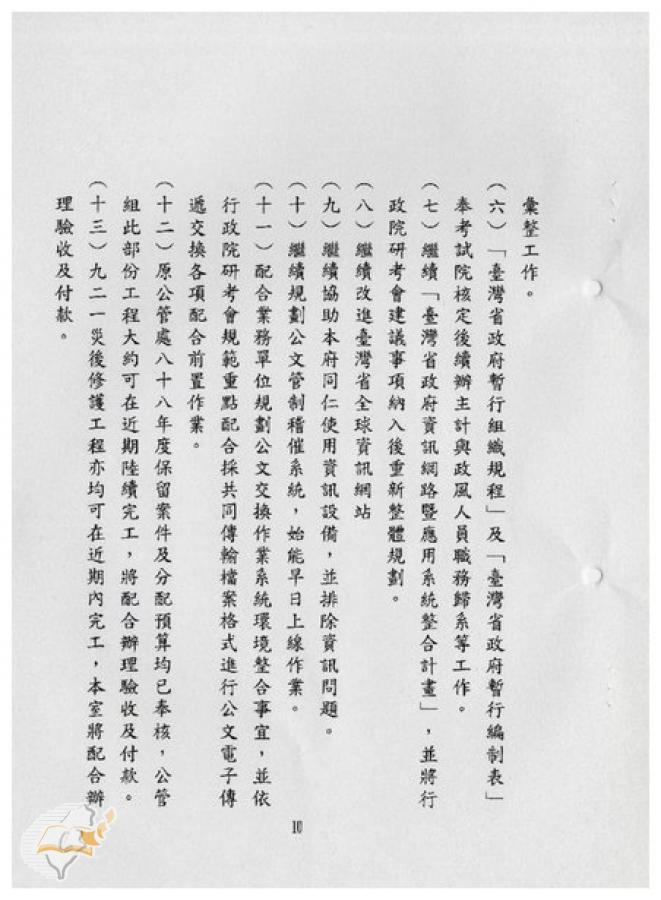 彙整工作。
（六）「臺灣省政府暫行組織規程」及「臺灣省政府暫行編制表」
奉考試院核定後續辦主計與政風人員職務歸系等工作。
（七）繼續「臺灣省政府資訊網路暨應用系統整合計畫」，並將行
政院研考會建議事項納入後重新整體規劃。
（八）繼續改進臺灣省全球資訊網站
（九）繼續協助本府同仁使用資訊設備，並排除資訊問題。
（十）繼續規劃公文管制稽催系統，始能早日上線作業。
（十一）配合業務單位規劃公文交換作業系統環境整合事宜，並依
行政院研考會規範重點配合採共同傳輸檔案格式進行公文電子傳
遞交換各項配合前置作業。
（十二）原公管處八十八年度保留案件及分配預算均已奉核，公管
組此部份工程大約可在近期陸續完工，將配合辦理驗收及付款。
（十三）九二一災後修護工程亦均可在近期內完工，本室將配合辦
理驗收及付款。
10